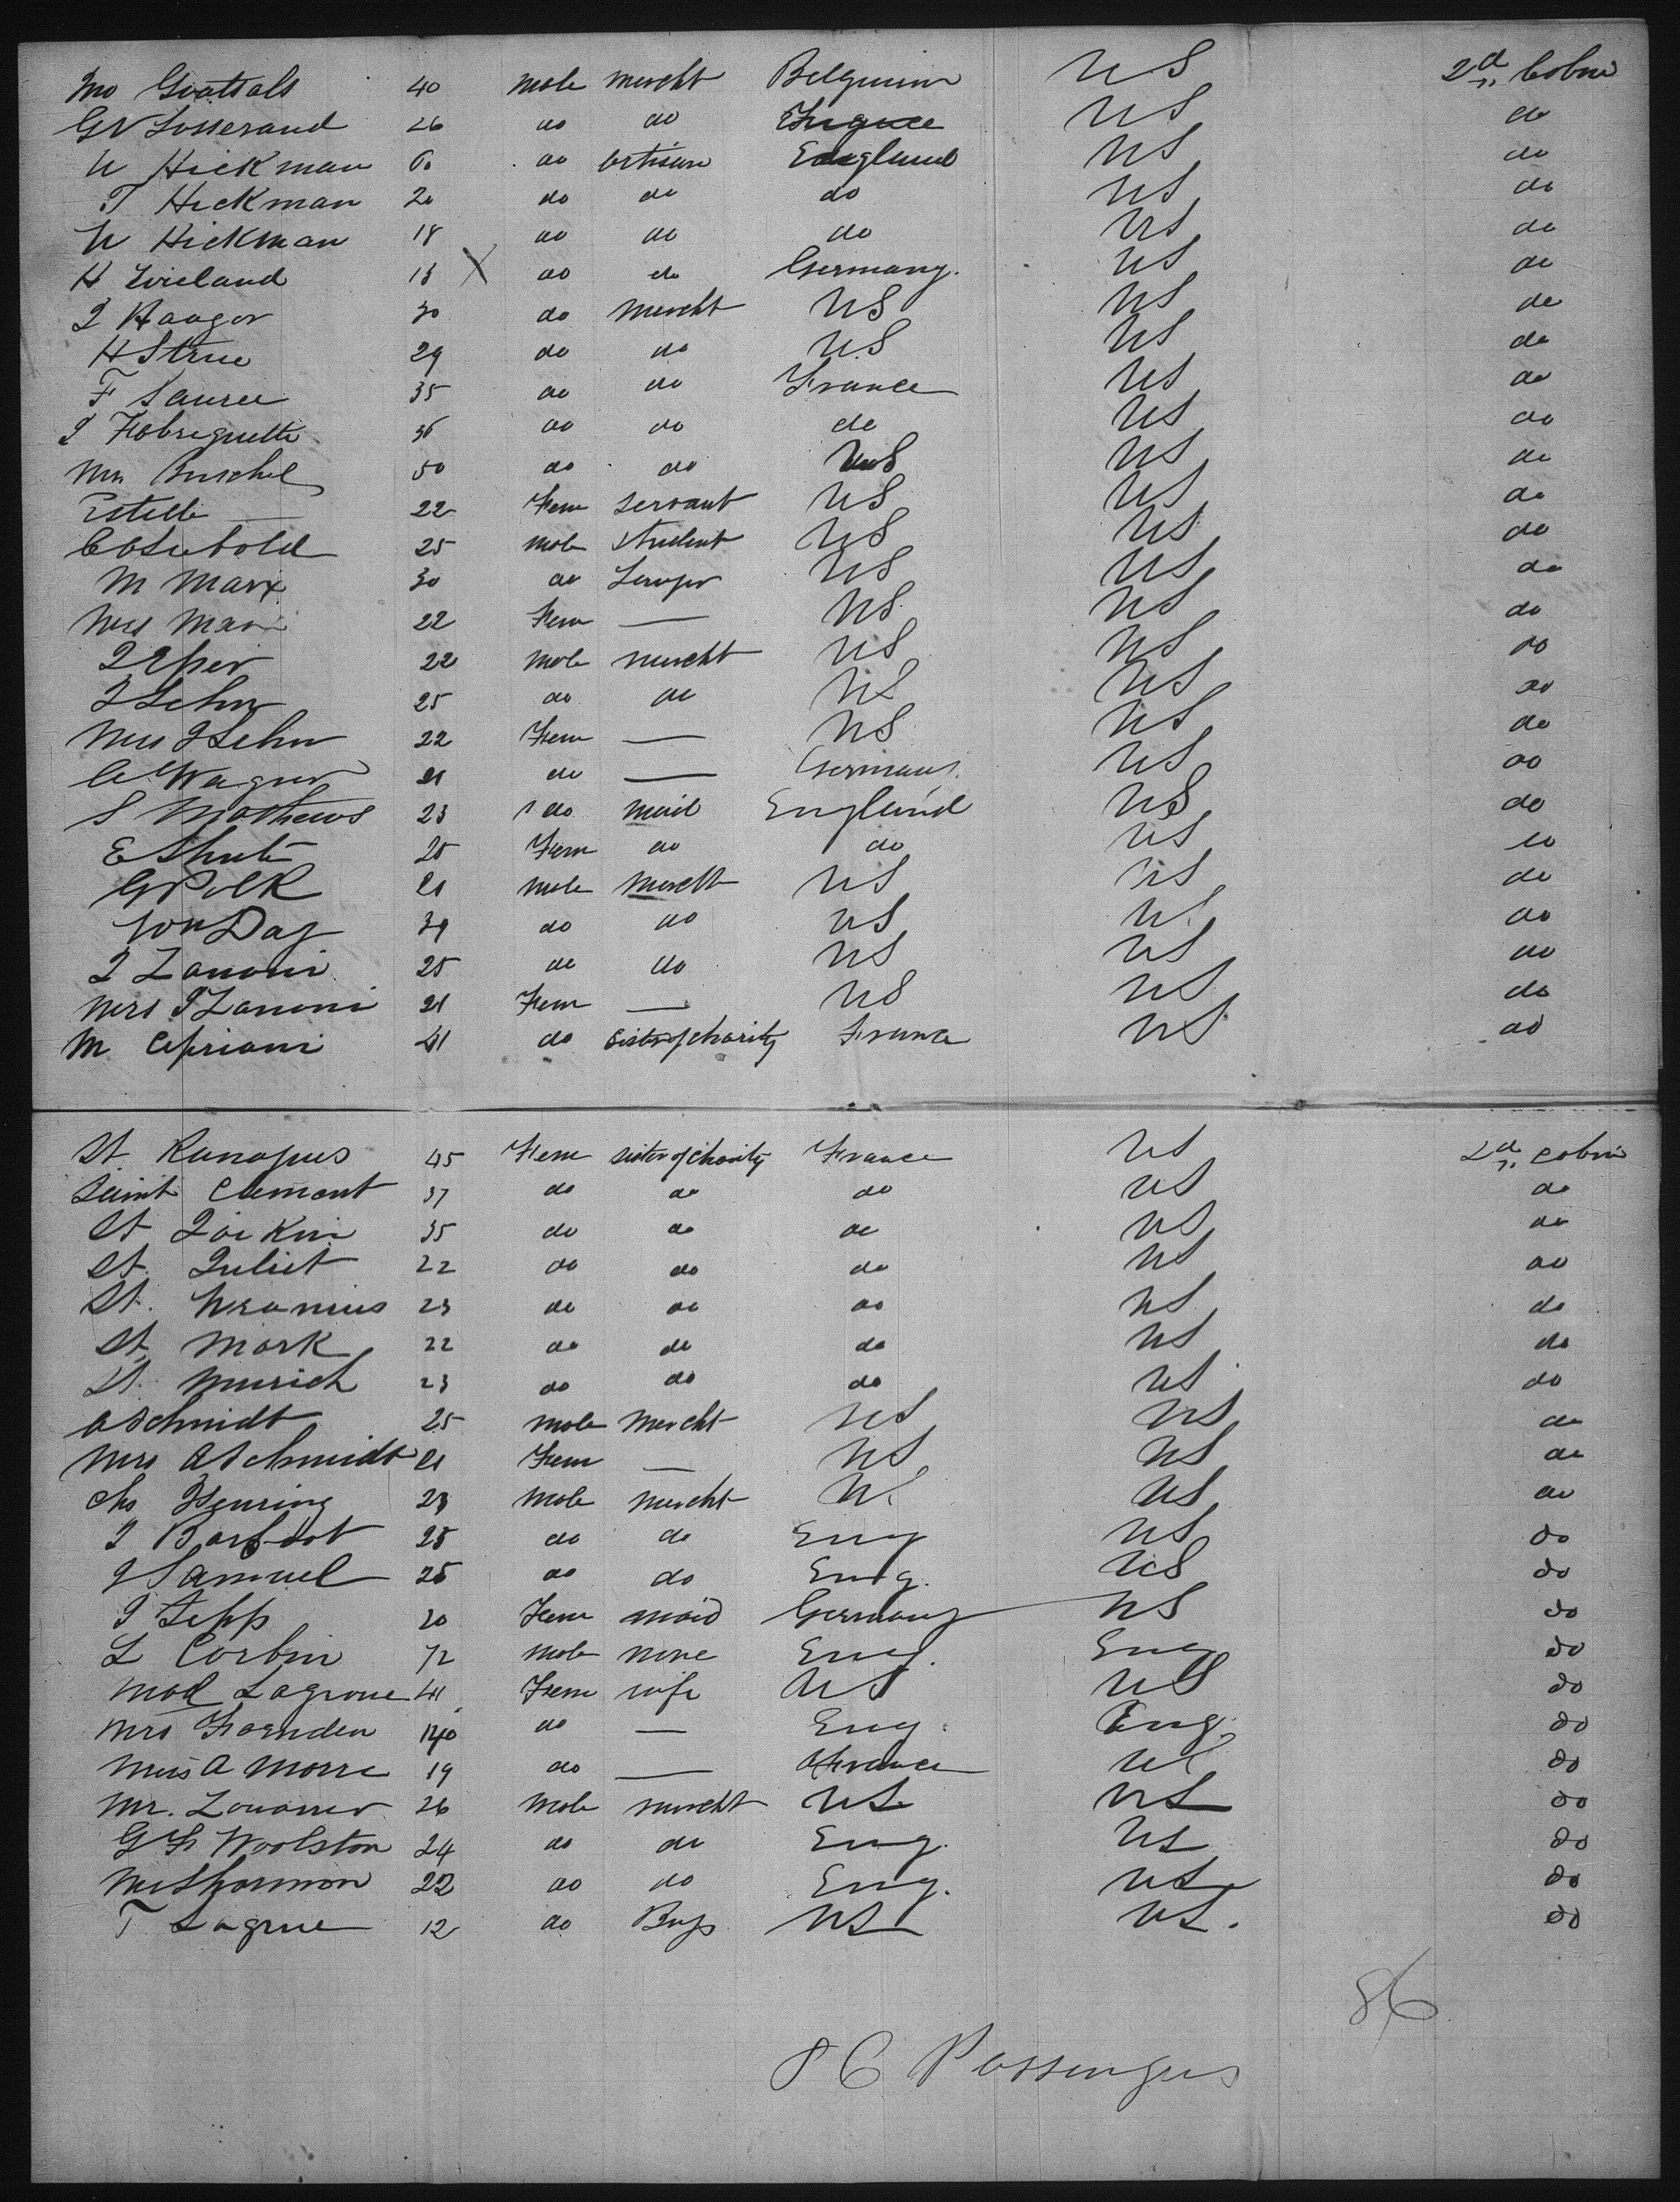 Mo Goattals 40 male mercht Belguim US 2d Cabin
GV Josserand 26 do do US do
W Hickman 60 do artisan England US do
T Hickman 20 do do do US do
W Hickman 18 do do do US do
H Wieland 18 X do do Germany. US do
J Haager 30 do mercht US US do
H Strue 29 do do US US do
F Sauree 35 do do France US do
J Fabreguette 36 do do do US do
Mr Buschel 50 do do US US do
Estelle — 22 Fem servant US US do
25 male student US US do
M Marx 30 do US US do
Mrs Marx 22 Fem — US US do
22 male mercht US US do
J Lehn 25 do do US US do
Mrs J Lehn 22 Fem — US US do
C Wagner 21 do — Germany. US do
S Mathews 23 do maid England US do
E Shute 25 Fem do do US do
G Polk 21 male mercht US US do
Wm Day 39 do do US US do
J Zanoni 25 do do US US do
Mrs J Zanoni 21 Fem — US US do
M Cipriani 41 do Sister of charity France US do
St Kanapus 45 Fem sister of charity France US 2d Cabin
Saint Clement 37 do do do US do
St Joi Kim 35 do do do US do
St. Juliet 22 do do do US do
St. Uranius 23 do do do US do
St. Mark 22 do do do US do
St. Murich 23 do do do US do
A Schmidt 25 male mercht US US do
Mrs A Schmidt 21 Fem — US US do
Chs Henring 23 male mercht US US do
J Barfoot 25 do do Eng US do
J Samuel 25 do do Eng. US do
J Zepp 20 Fem maid Germany US do
L Corbin 72 male none Eng. Eng do
Mad Lagrove 41 Fem wife US US do
Mrs Farnden 40 do — Eng. Eng. do
Miss A Morre 19 do — France US do
Mr. Zouaner 26 male mercht US US do
G F Woolston 24 do do Eng. US do
Mr Sharmon 22 do do Eng. US do
T Lagrue 12 do Boy US US. do
86
86 Passengers